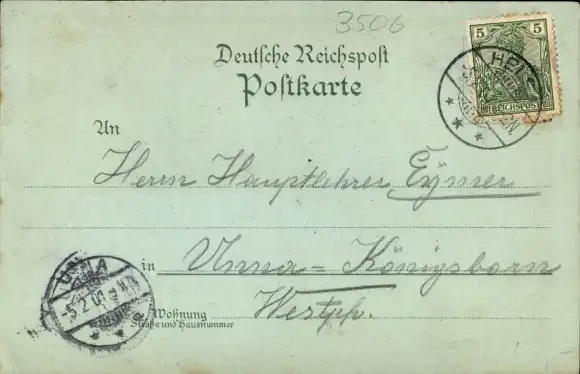 3506
Deutsche Reichspost
Postkarte
5 5
REICHSPOST
An
Herrn Hauptlehrer Eymer
in Unna-Königsborn
Westph.
Wohnung
Straße und Hausnummer
UNNA